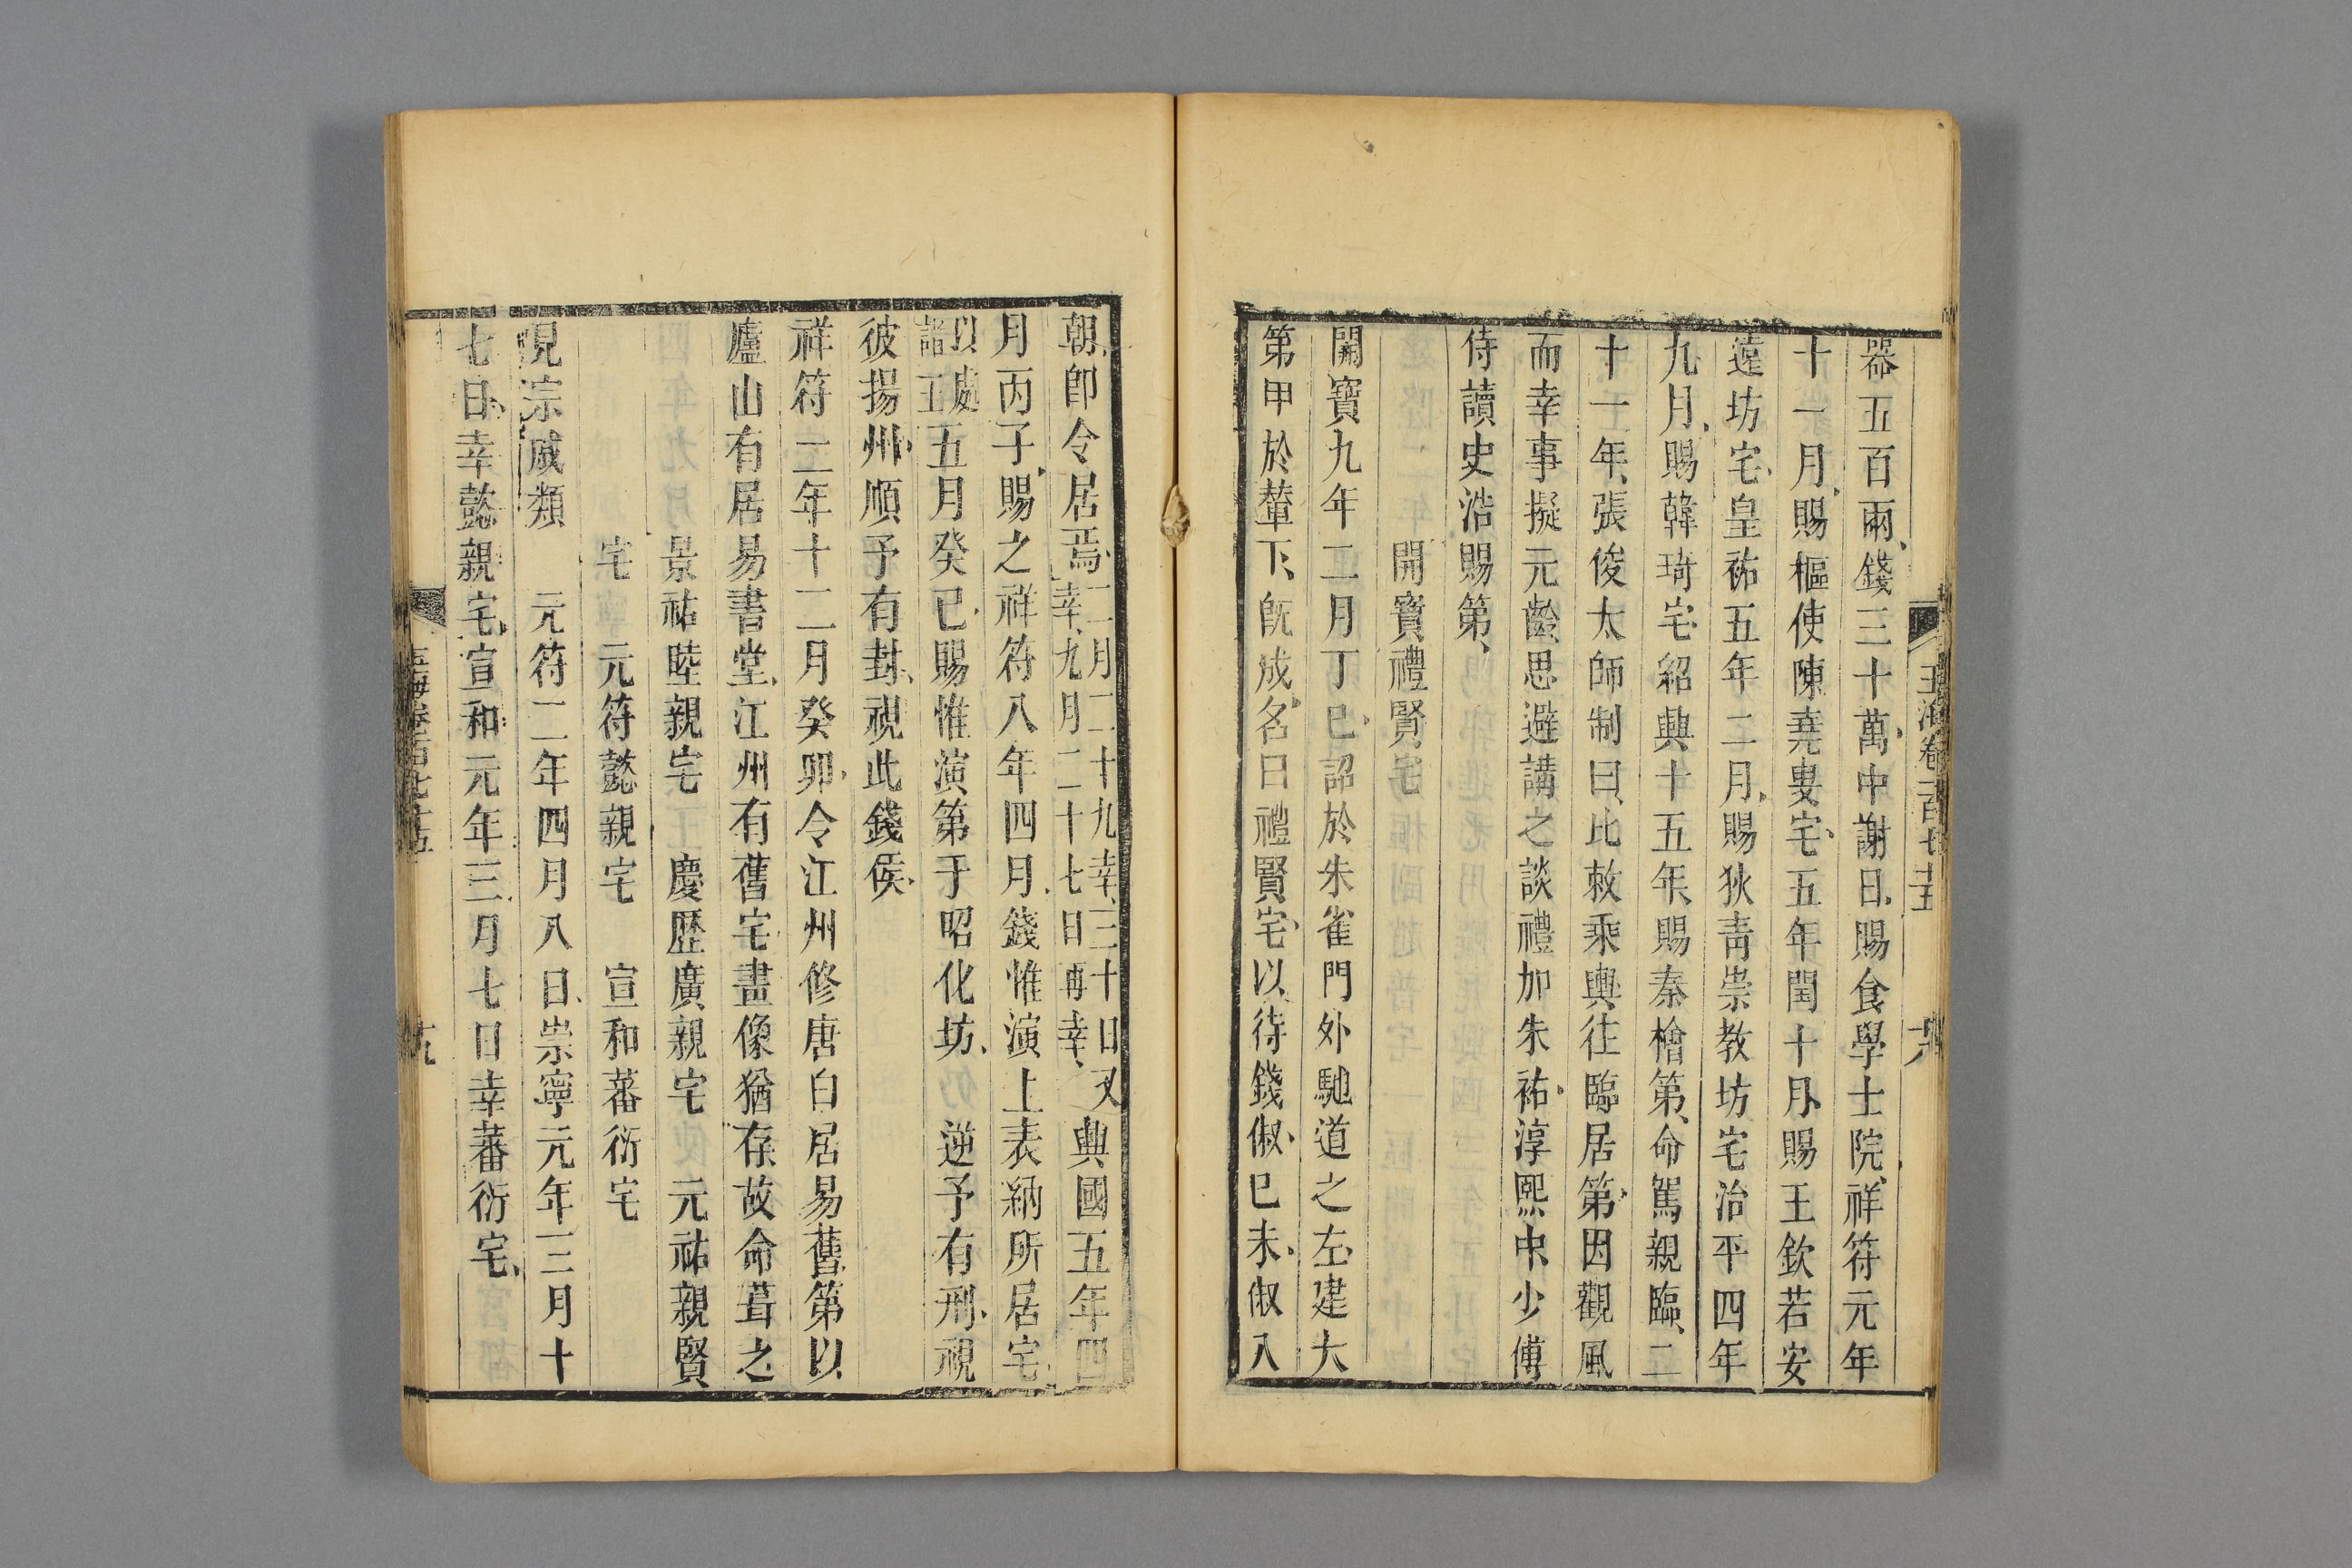 玉海卷一百七十五
器五百兩錢三十萬中謝日賜食學士院祥符元年
十一月賜樞使陳堯叟宅五年閏十月賜王欽若安
遠坊宅皇祐五年二月賜狄青崇教坊宅治平四年
九月賜韓琦宅紹興十五年賜秦檜第命駕親臨二
十一年張俊太師制曰比敕乘輿往臨居第因觀風
而幸事擬元齡思避講之談禮加朱祐淳熙中少傅
侍讀史浩賜第
開寶禮賢宅
開寶九年二月丁巳詔於朱雀門外馳道之左建大
第甲於輦下旣成名曰禮賢宅以待錢俶已未俶入
朝卽令居焉二月二十九幸三十日又幸九月二十七日再幸興國五年四
月丙子賜之祥符八年四月錢惟演上表納所居宅
以處諸王五月癸巳賜惟演第于昭化坊 逆予有刑視
彼揚州順予有封視此錢侯
祥符二年十二月癸卯令江州修唐白居易舊第以
廬山有居易書堂江州有舊宅畫像猶存故命葺之
景祐睦親宅 慶歷廣親宅 元祐親賢
宅 元符懿親宅 宣和蕃衍宅
見宗戚類 元符二年四月八日崇寧元年三月十
七日幸懿親宅宣和元年三月七日幸蕃衍宅